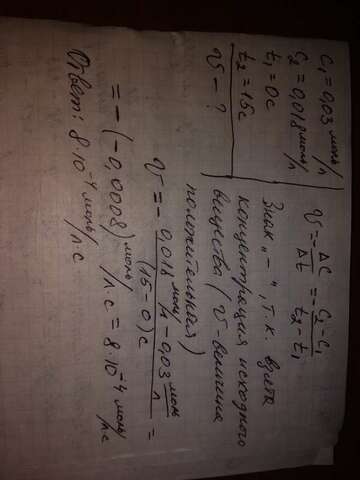 C₁ = 0,03 моль/л
C₂ = 0,018 моль/л
t₁ = 0 с
t₂ = 15 с
V - ?
V = - ΔC/Δt = - (C₂ - C₁)/(t₂ - t₁)
Знак „-", т.к. взята
концентрация исходного
вещества (V - величина
положительная)
V = - (0,018 моль/л - 0,03 моль/л)/((15 - 0) с) =
= - (-0,0008) моль/л·с = 8·10⁻⁴ моль/л·с
Ответ: 8·10⁻⁴ моль/л·с